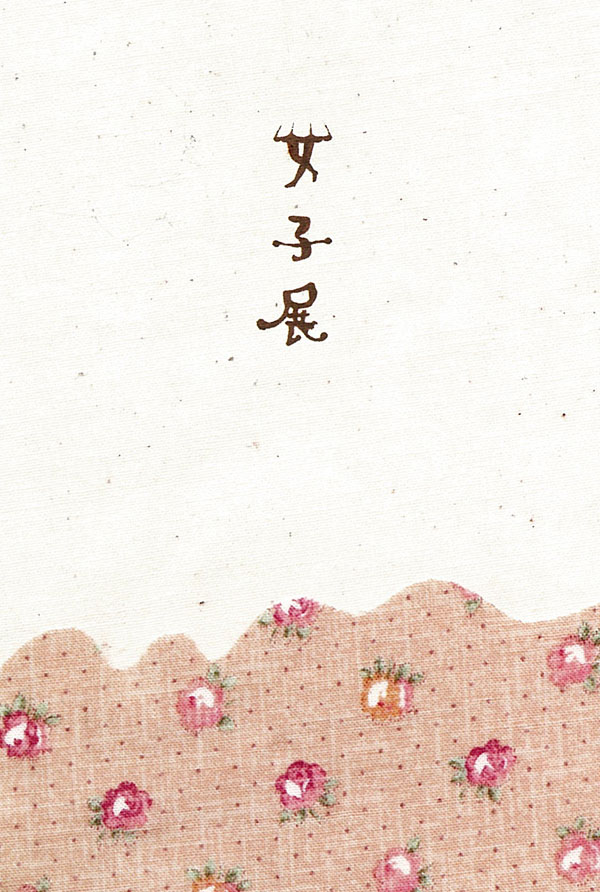 女子展